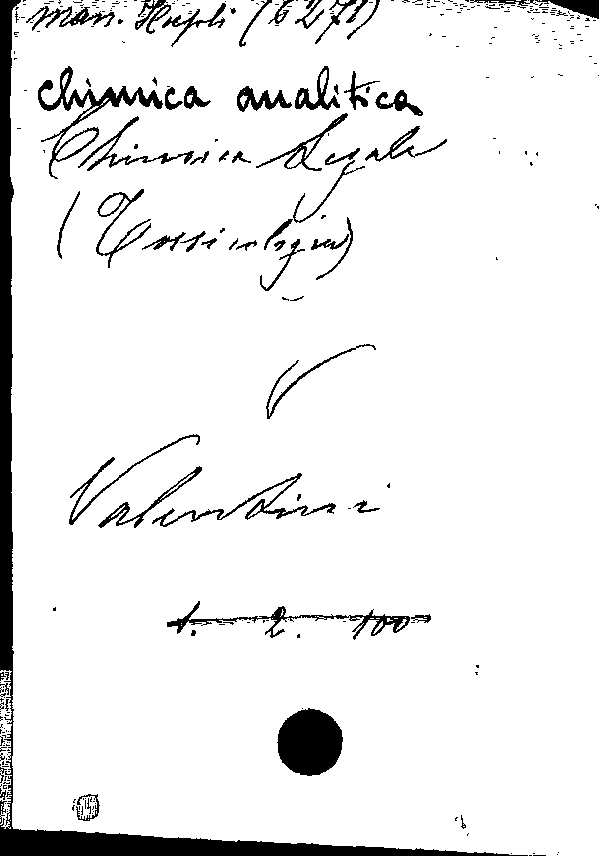 man. Hoepli (6271)
chimica analitica
Chimica Legale
(Tossicologia)
V
Valentini
1. 2. 100